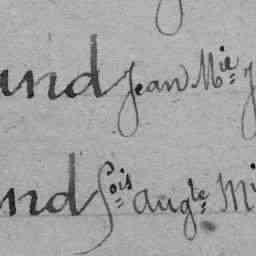 and Jean Mie J
nd fois augte Mi